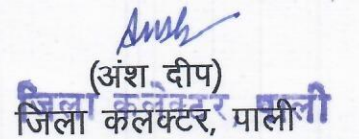 (अंश दीप)
जिला कलेक्टर पाली
जिला कलक्टर, पाली